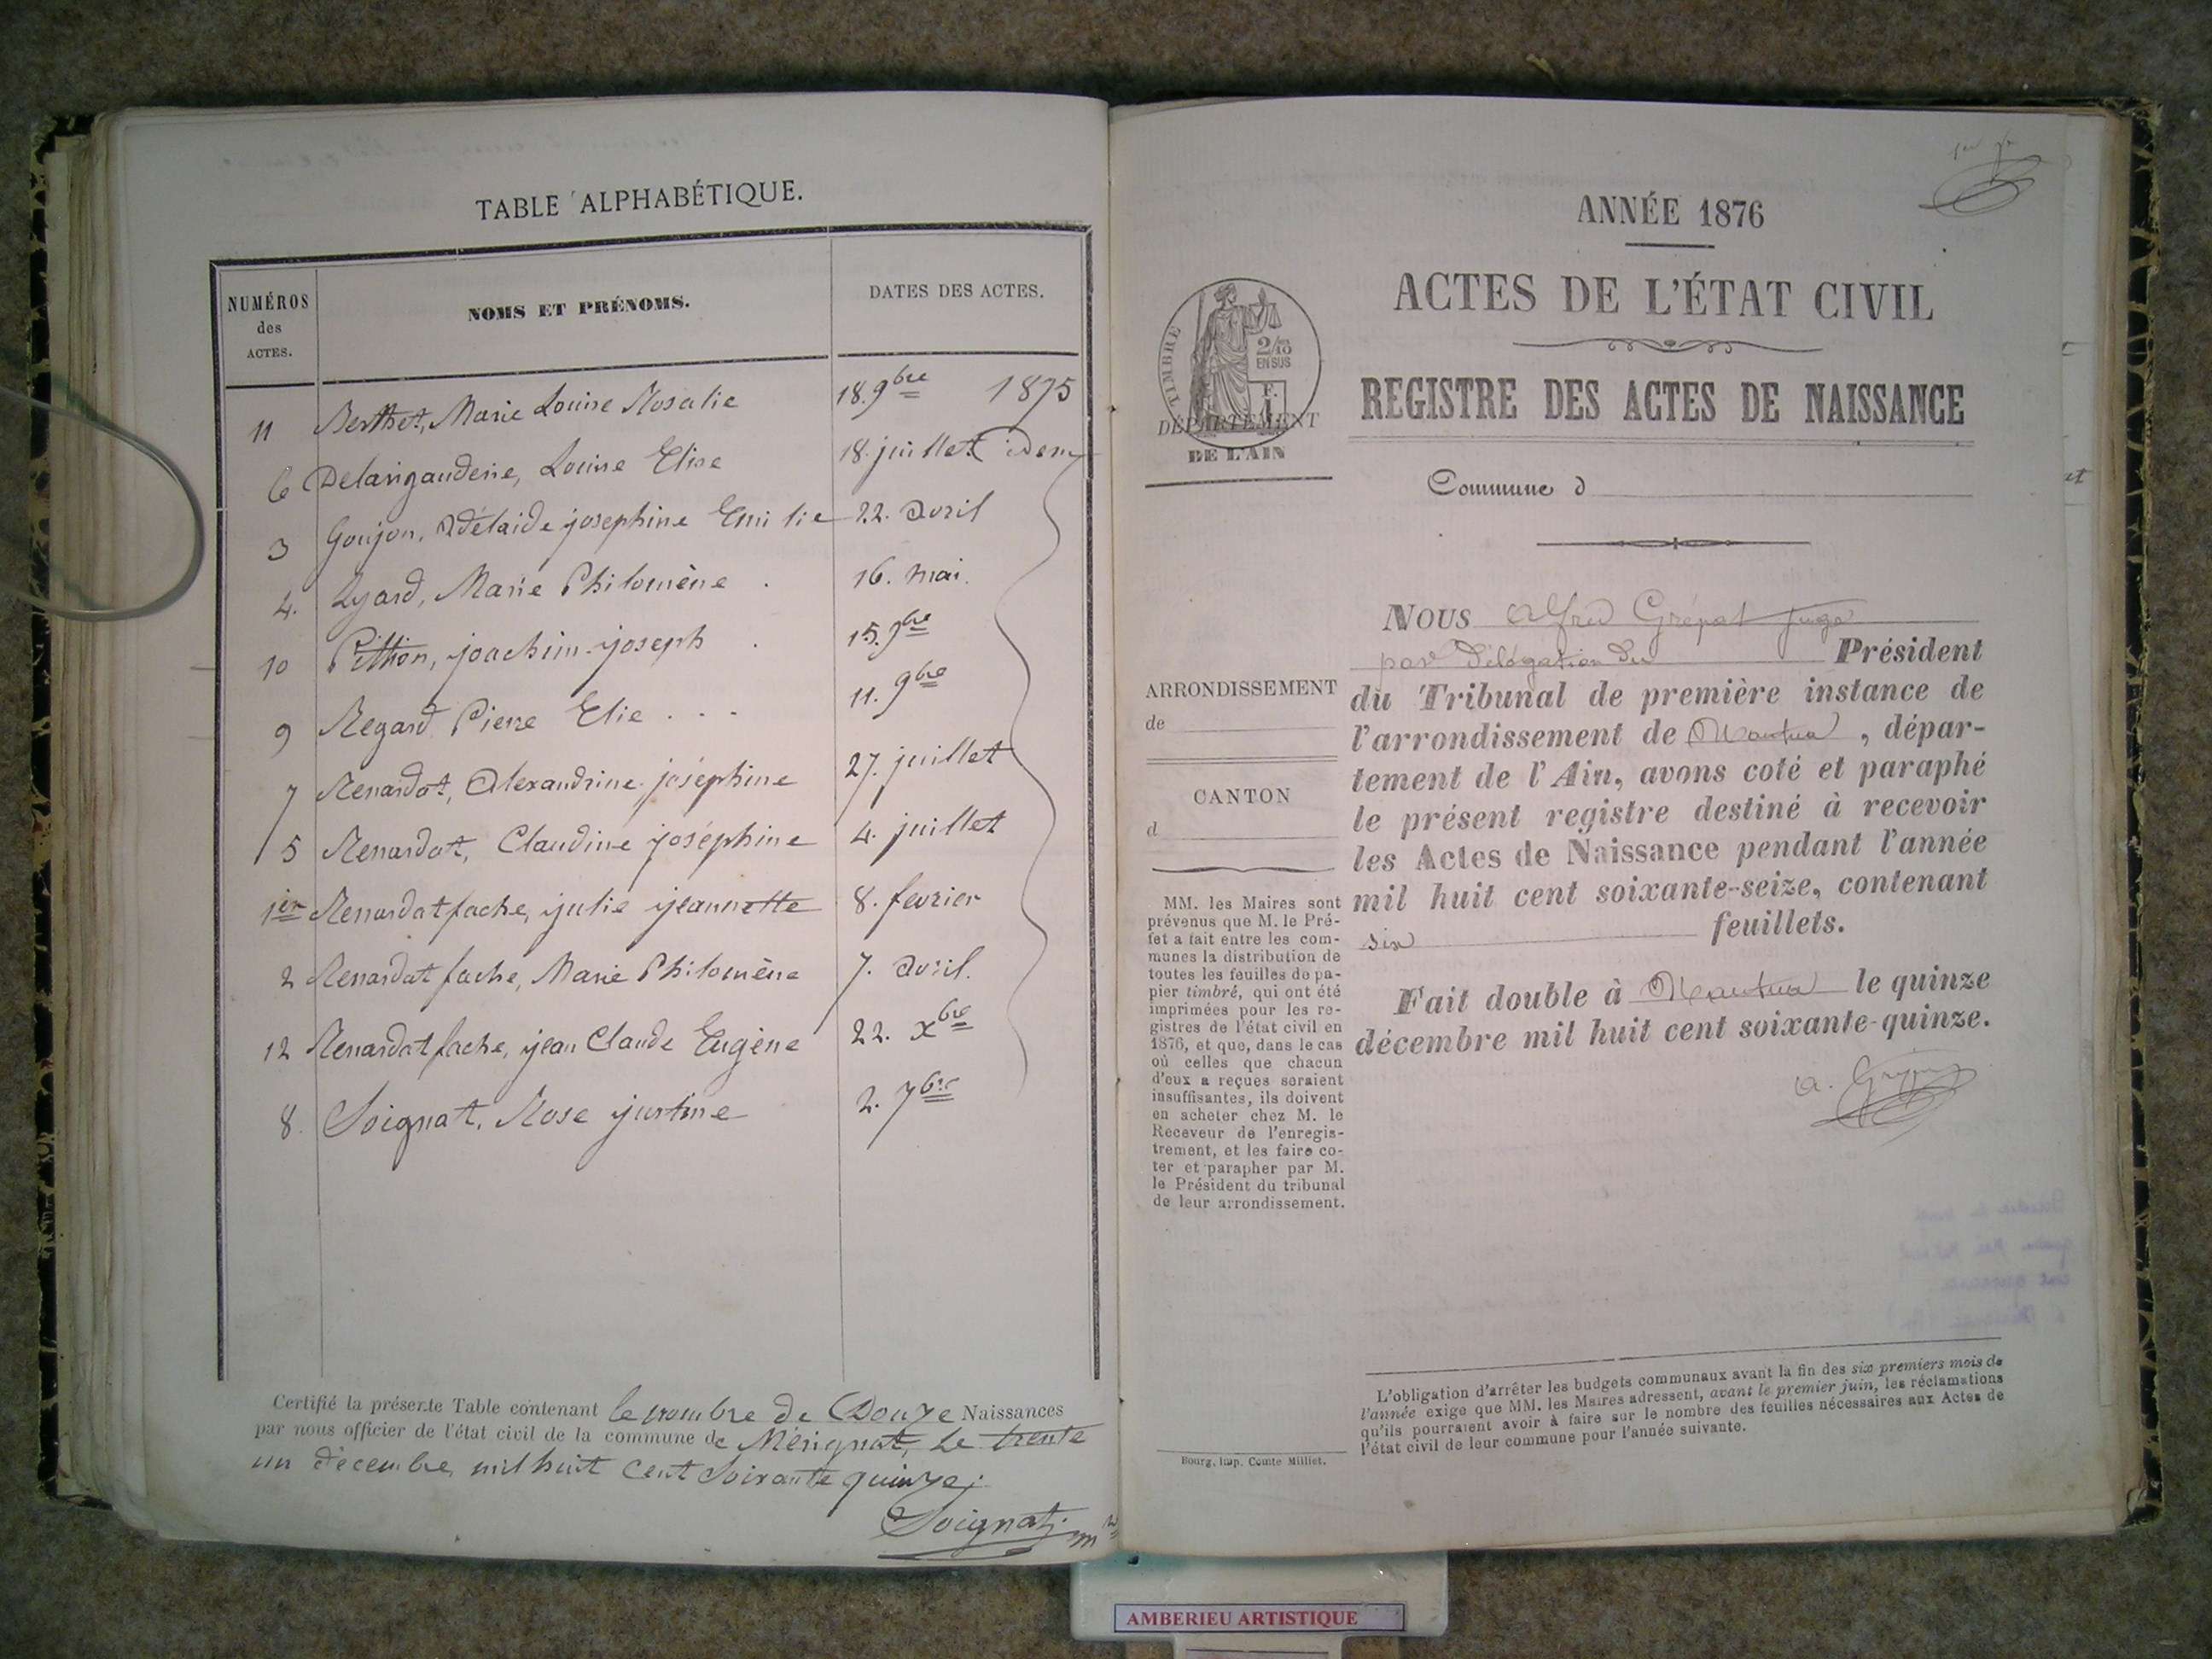 TABLE ALPHABÉTIQUE.
NUMÉROS
des
ACTES.
NOMS ET PRÉNOMS.
DATES DES ACTES.
11 Berthet, Marie Louise Rosalie 18. 9bre 1875
6 Delarigauderie, Louise Elise 18. juillet idem
3 Goujon, Adélaide josephine Emilie 22. avril
4. Lyard, Marie Philomène . 16. mai.
10 Pithion, joachim-joseph . 15. 9bre
9 Regard Pierre Elie . . . 11. 9bre
7 Renardat, Alexandrine joséphine 27. juillet
5 Renardat, Claudine joséphine 4. juillet
1er Renardat fache, julie jeannette 8. fevrier
2 Renardat fache, Marie Philomène 7. avril.
12 Renardat fache, jean Claude Eugène 22. xbre
8. Soignat, Rose justine 2. 7bre
Certifié la présente Table contenant le nombre de Douze Naissances
par nous officier de l'état civil de la commune de Mérignat, le trente
un décembre mil huit cent soixante quinze;
Soignat;
ANNÉE 1876
ACTES DE L'ÉTAT CIVIL
REGISTRE DES ACTES DE NAISSANCE
TIMBRE
2/10
EN SUS
F.
DÉPARTEMENT
DE L'AIN
Commune d
ARRONDISSEMENT
de
CANTON
d
MM. les Maires sont
prévenus que M. le Pré-
fet a fait entre les com-
munes la distribution de
toutes les feuilles de pa-
pier timbré, qui ont été
imprimées pour les re-
gistres de l'état civil en
1876, et que, dans le cas
où celles que chacun
d'eux a reçues seraient
insuffisantes, ils doivent
en acheter chez M. le
Receveur de l'enregis-
trement, et les faire co-
ter et parapher par M.
le Président du tribunal
de leur arrondissement.
Bourg, Imp. Comte Milliet.
NOUS Alfred Grépat juge
par délégation du Président
du Tribunal de première instance de
l'arrondissement de Nantua, dépar-
tement de l'Ain, avons coté et paraphé
le présent registre destiné à recevoir
les Actes de Naissance pendant l'année
mil huit cent soixante-seize, contenant
six feuillets.
Fait double à Nantua le quinze
décembre mil huit cent soixante-quinze.
L'obligation d'arrêter les budgets communaux avant la fin des six premiers mois de
l'année exige que MM. les Maires adressent, avant le premier juin, les réclamations
qu'ils pourraient avoir à faire sur le nombre des feuilles nécessaires aux Actes de
l'état civil de leur commune pour l'année suivante.
AMBERIEU ARTISTIQUE